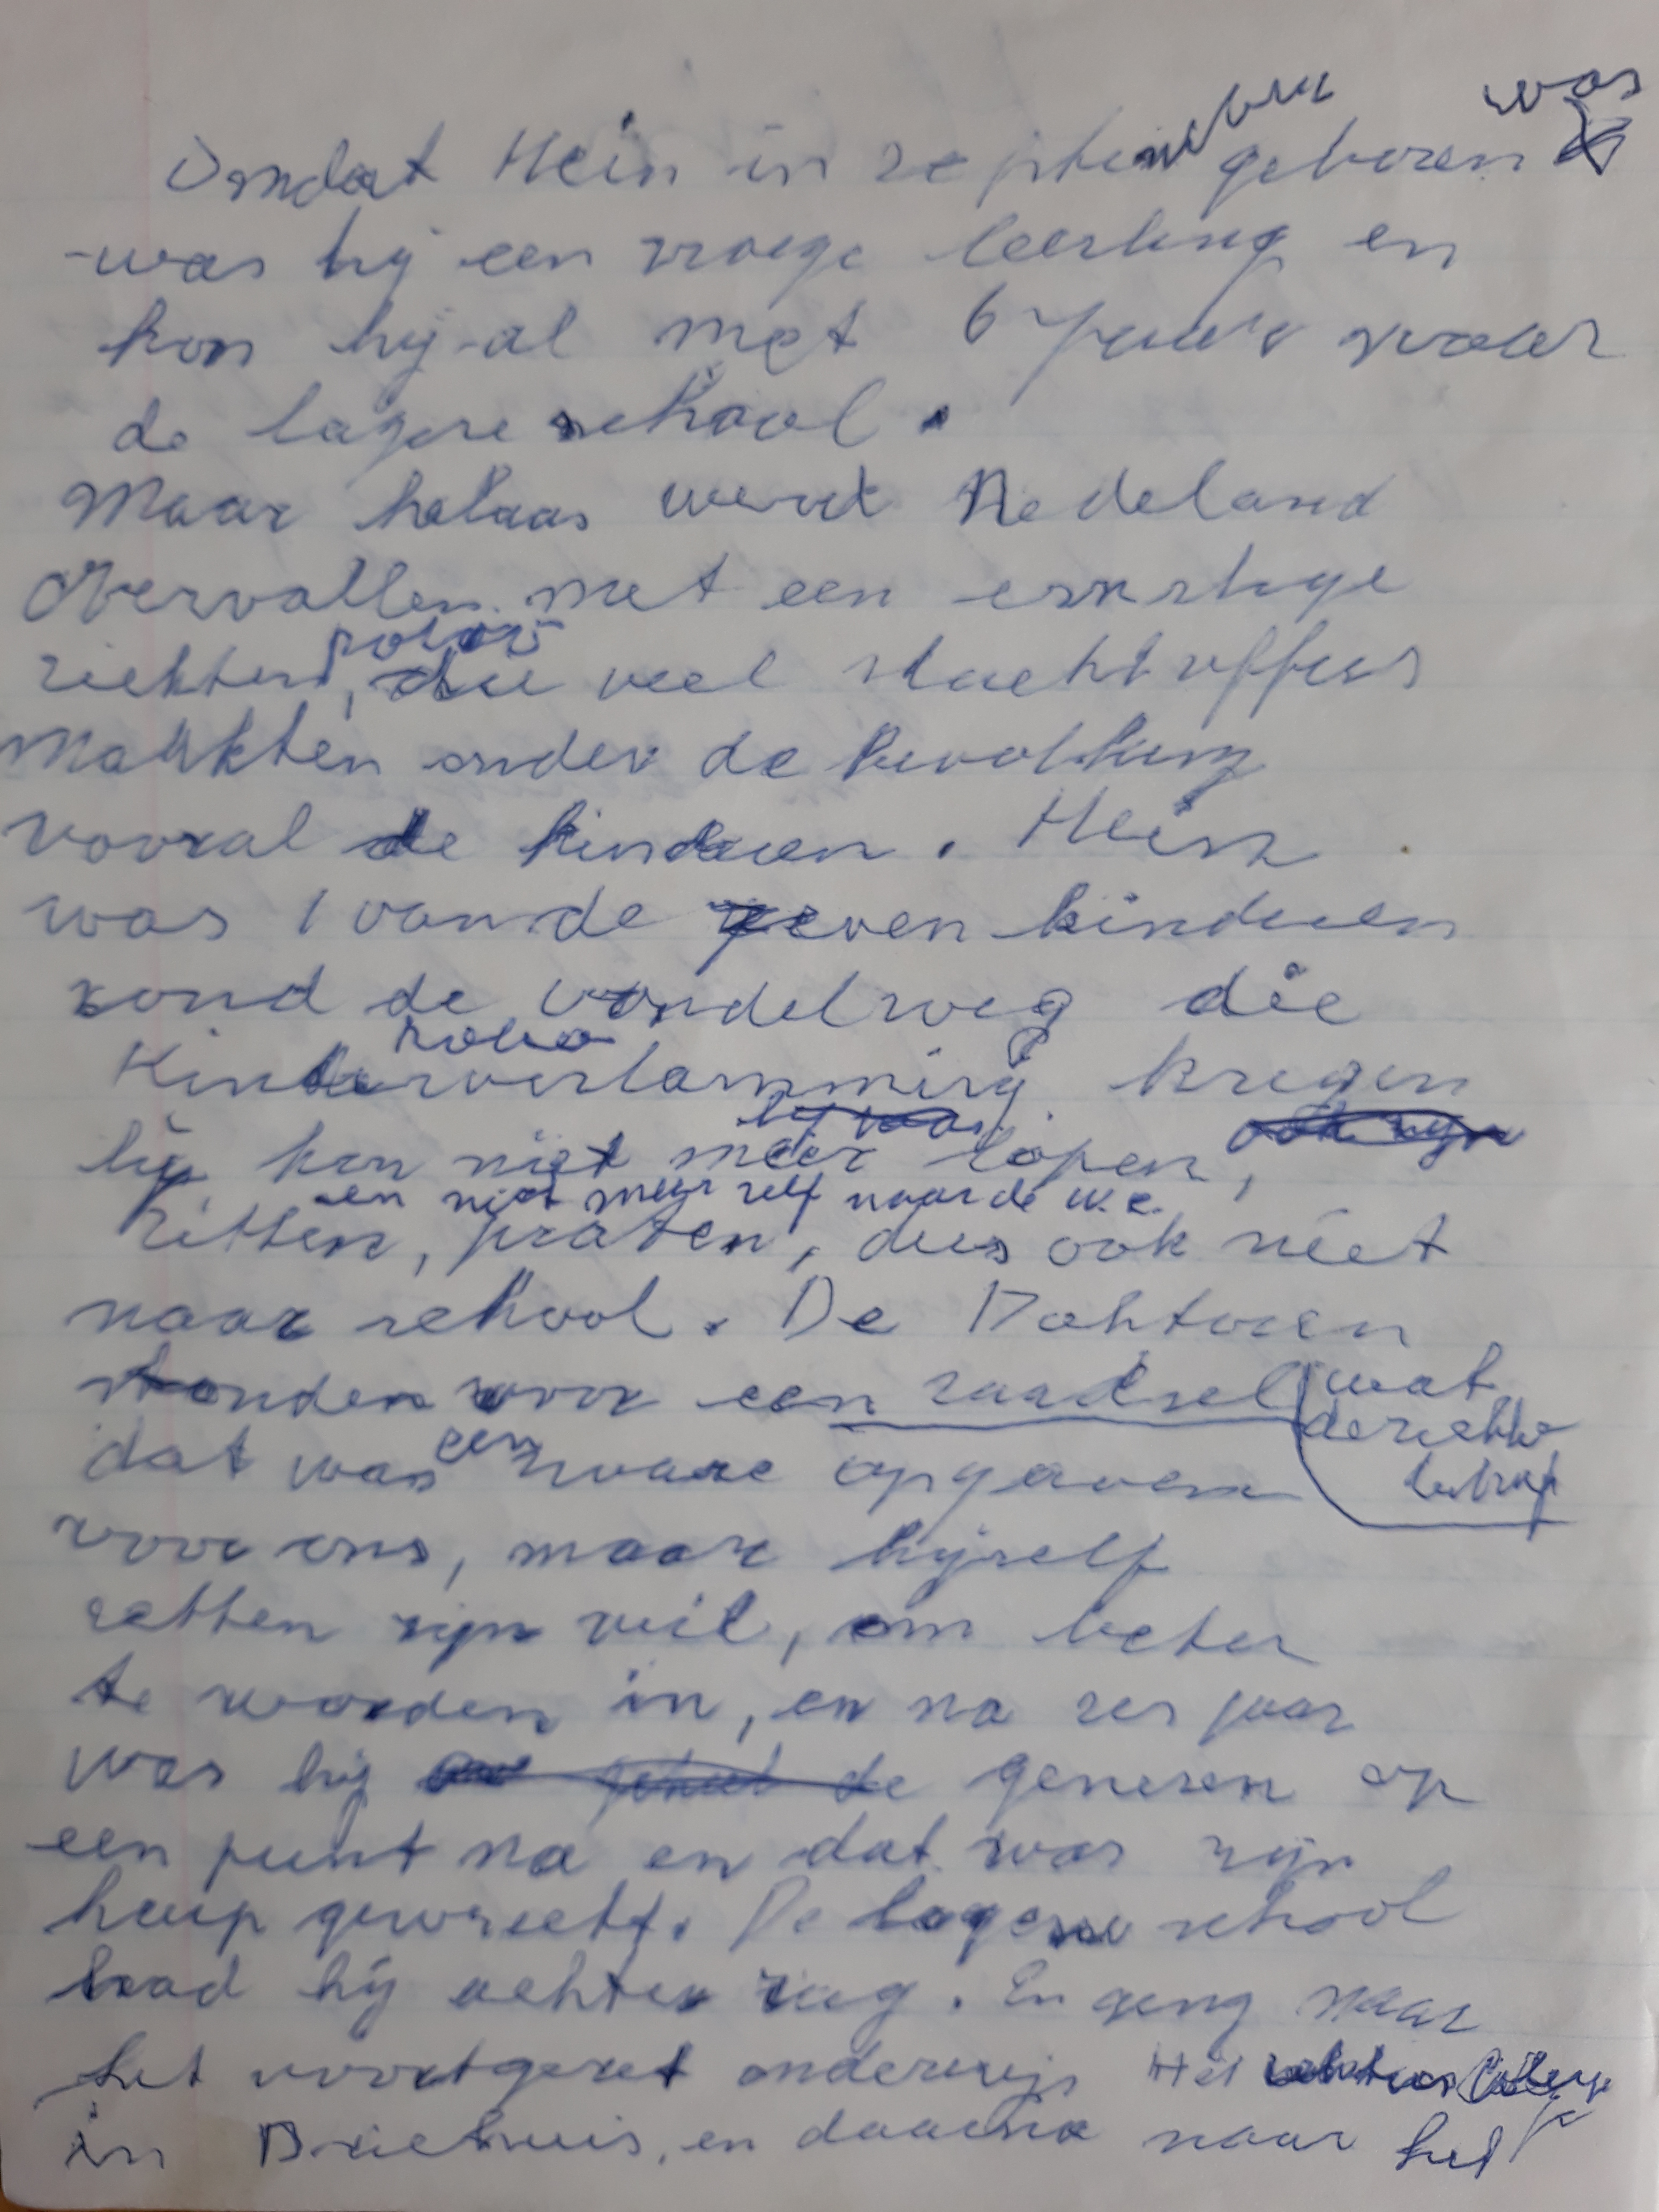 Omdat Hein in september geboren was
was hij een vroege leerling en
kon hij al met 6 jaar naar
de lagere school.
Maar helaas werd Nedeland
Overvallen met een ernstige
ziekten, polio, die veel slachtoffers
Maakten onder de bevolking
vooral de kinderen. Hein
was 1 van de zeven kinderen
rond de vondelweg die
polio
Kinderverlamming kregen
hij kon niet meer lopen,
en niet meer zelf naar de w.c.
zitten, praten, dus ook niet
naar school. De Doktoren
stonden voor een raadsel wat
de ziekte
betrof
dat was een zware opgaven
voor ons, maar hijzelf
zetten zijn wil, om beter
te worden in, en na zes jaar
was hij genezen op
een punt na en dat was zijn
heup gewricht. De lagere school
had hij achter rug. En ging naar
het voortgezet onderwijs Het College
in Driehuis, en daarna naar het